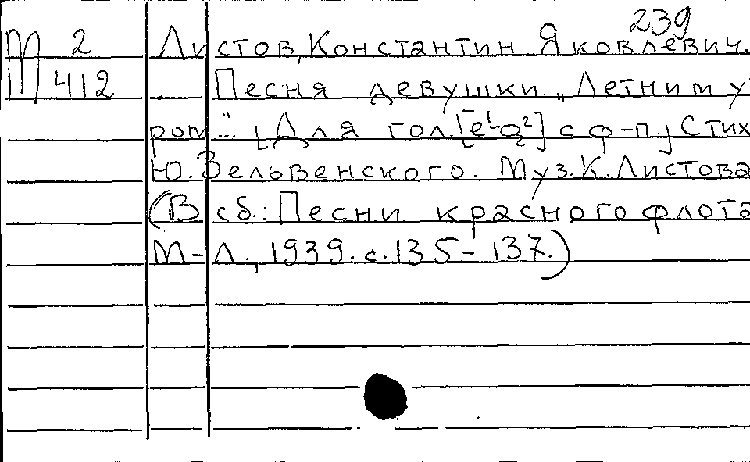 239
М 2 Листов, Константин Яковлевич.
М 412 Песня девушки „Летним у
ром..." [Для гол. [e¹-g²] с ф-п.] Стих
Ю. Зельвенского. Муз. К. Листова
(В сб.: Песни красного флота
М-Л., 1939. с. 135-137.)